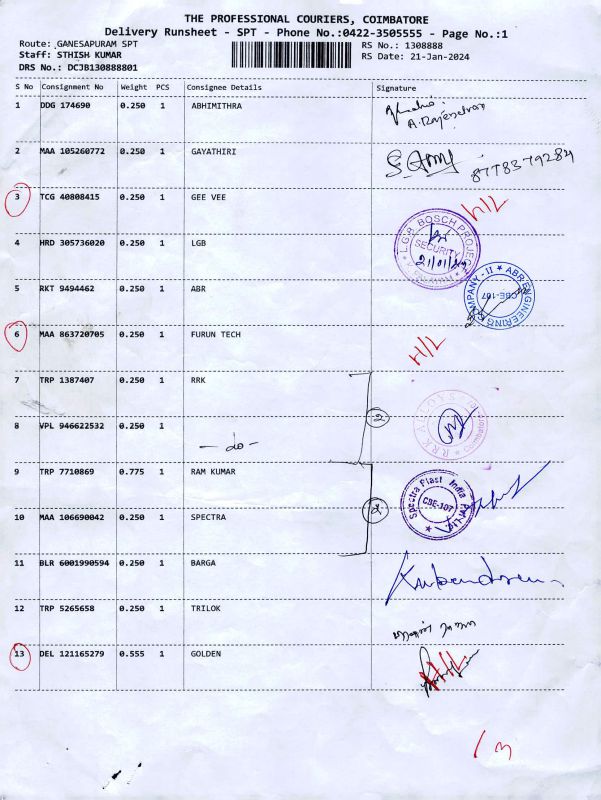 THE PROFESSIONAL COURIERS, COIMBATORE
Delivery Runsheet - SPT - Phone No.:0422-3505555 - Page No.:1
Route: GANESAPURAM SPT
RS No.: 1308888
Staff: STHISH KUMAR
RS Date: 21-Jan-2024
DRS No.: DCJB130888801
S No Consignment No Weight PCS Consignee Details Signature
1 DDG 174690 0.250 1 ABHIMITHRA
A. Rajendran
2 MAA 105260772 0.250 1 GAYATHIRI
8778379284
3 TCG 40808415 0.250 1 GEE VEE
N/L
4 HRD 305736020 0.250 1 LGB
L.G.B BOSCH PROJECT
SECURITY
21/01/24
5 RKT 9494462 0.250 1 ABR
ABR ENGINEERING COMPANY - II
CBE-107
6 MAA 863720705 0.250 1 FURUN TECH
N/L
7 TRP 1387407 0.250 1 RRK
RRK ALLOYS
Coimbatore
2
8 VPL 946622532 0.250 1
- do -
9 TRP 7710869 0.775 1 RAM KUMAR
Spectra Plast India Pvt. Ltd.
CBE-107
2
10 MAA 106690042 0.250 1 SPECTRA
11 BLR 6001990594 0.250 1 BARGA
12 TRP 5265658 0.250 1 TRILOK
13 DEL 121165279 0.555 1 GOLDEN
N/L